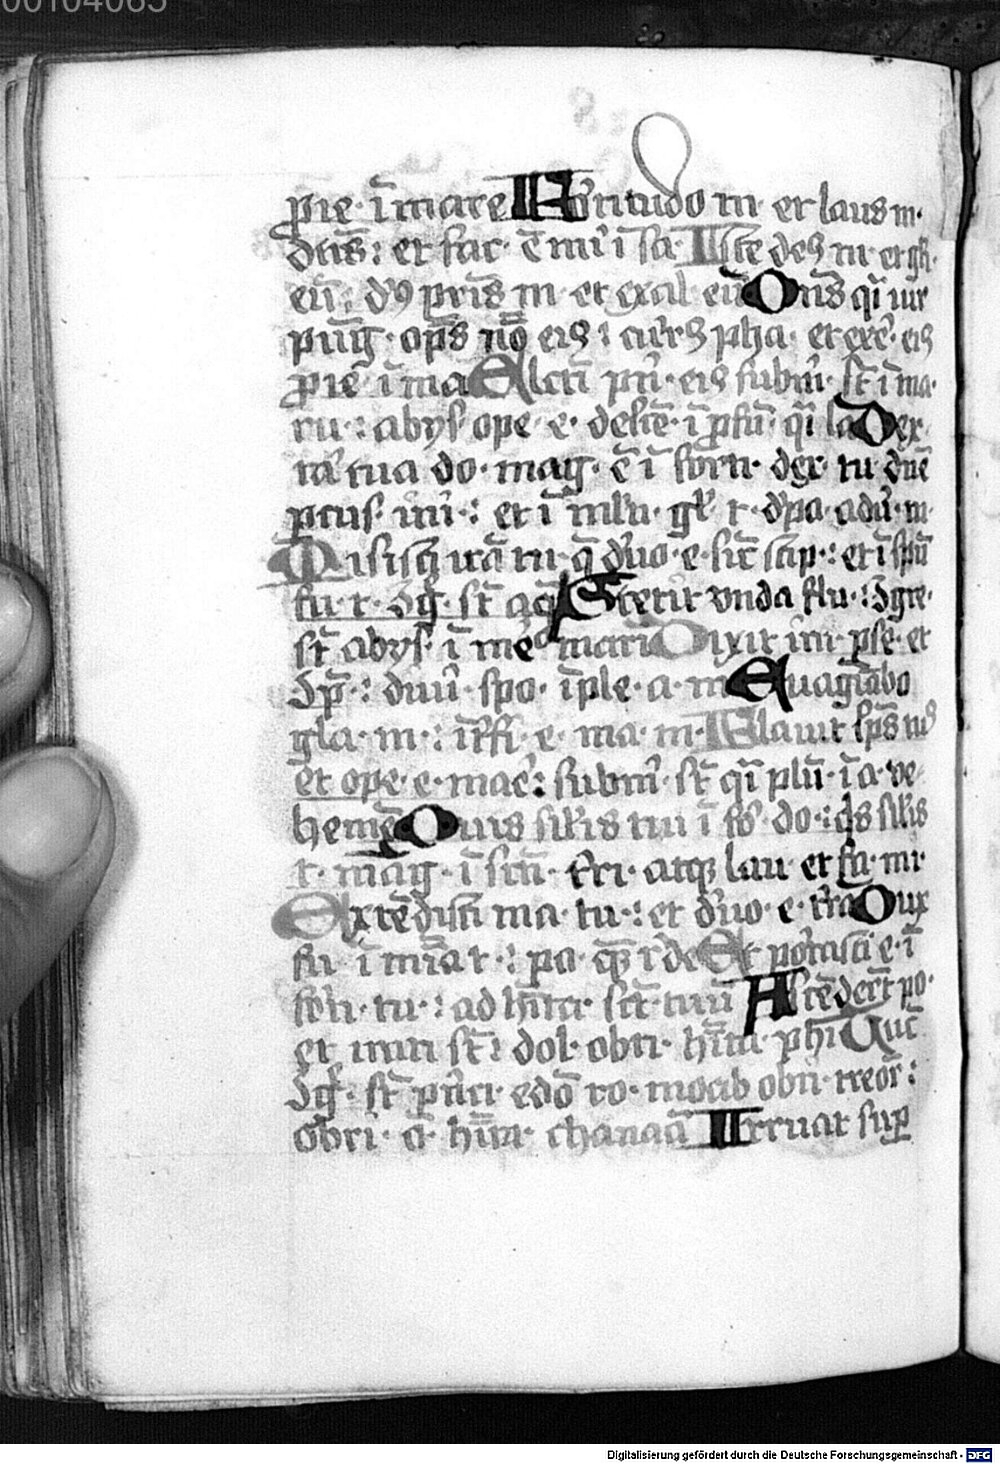 00104065
ꝓie · ı̄ mare Fortitudo m · et laus m ·
dn̄s : et fac · ē mı̾ ı̄ sa · Iste deꝰ m · et gl̾i ·
eū : dꝰ pr̄is m · et exal eū Dn̄s qı̄ uir
pug̅ · op̄s nō eiꝰ : cur̾s pha · et exc̾ · eiꝰ
ꝓie̾ ı̄ ma Electi pn̾ · eiꝰ subm̾ · st̄ ı̄ ma ·
ru · : abys̾ ope · e · desce̅ · ı̄ ꝓfū · qı̄ la Dex
ra̾ tua do · mag · ē ı̄ forti · dex · tu dn̄e
pcus · ini · : et ı̄ ml̾ti · gl̾ · t · d̾po · adu̾ · m ·
Misisti ira̅ tu · q̄ d̾uo · e · sic̅ stip · : et ı̄ sp̄u
fu · t · ꝯg̾ · st̄ aq̄ Stetit vnda flu · : ꝯgre ·
st̄ abys̾ · ı̄ me° mari Dixit im · pse · et
ꝯp̄ · : diui̾ · spo · ı̄ple · a · m Euagı̄abo
gla · m · : ı̄t̾fi · e · ma · m · Flauit sp̄s tuꝰ
et ope · e · mac̾ : subm̾ · st̄ qı̄ plū · ı̄ a · ve ·
hemē Quis sil̾is tui ı̄ fo̾ · do · : q̾s sil̾is
t · mag · ı̄ sct̄i · t̾ri · atqꝫ lau · et fa · mi ·
Extēdisti ma · tu · : et d̾uo · e · t̾ra Dux
fu · ı̄ mı̄a t · : po · q̄ꝫ r̾de Et portasti e · ı̄
fo̾ti · tu · : ad hı̄tac · sct̄ · tuū Ascēder̄t po ·
et irati st̄ : dol · obti · hı̄ta · phi Tuc̄
ꝯg̾ · st̄ pn̾ci · edō ro · moab obti · treor̾ :
obri · o̅ · hı̄ta · chanaā Irruat sup̄
Digitalisierung gefördert durch die Deutsche Forschungsgemeinschaft - DFG